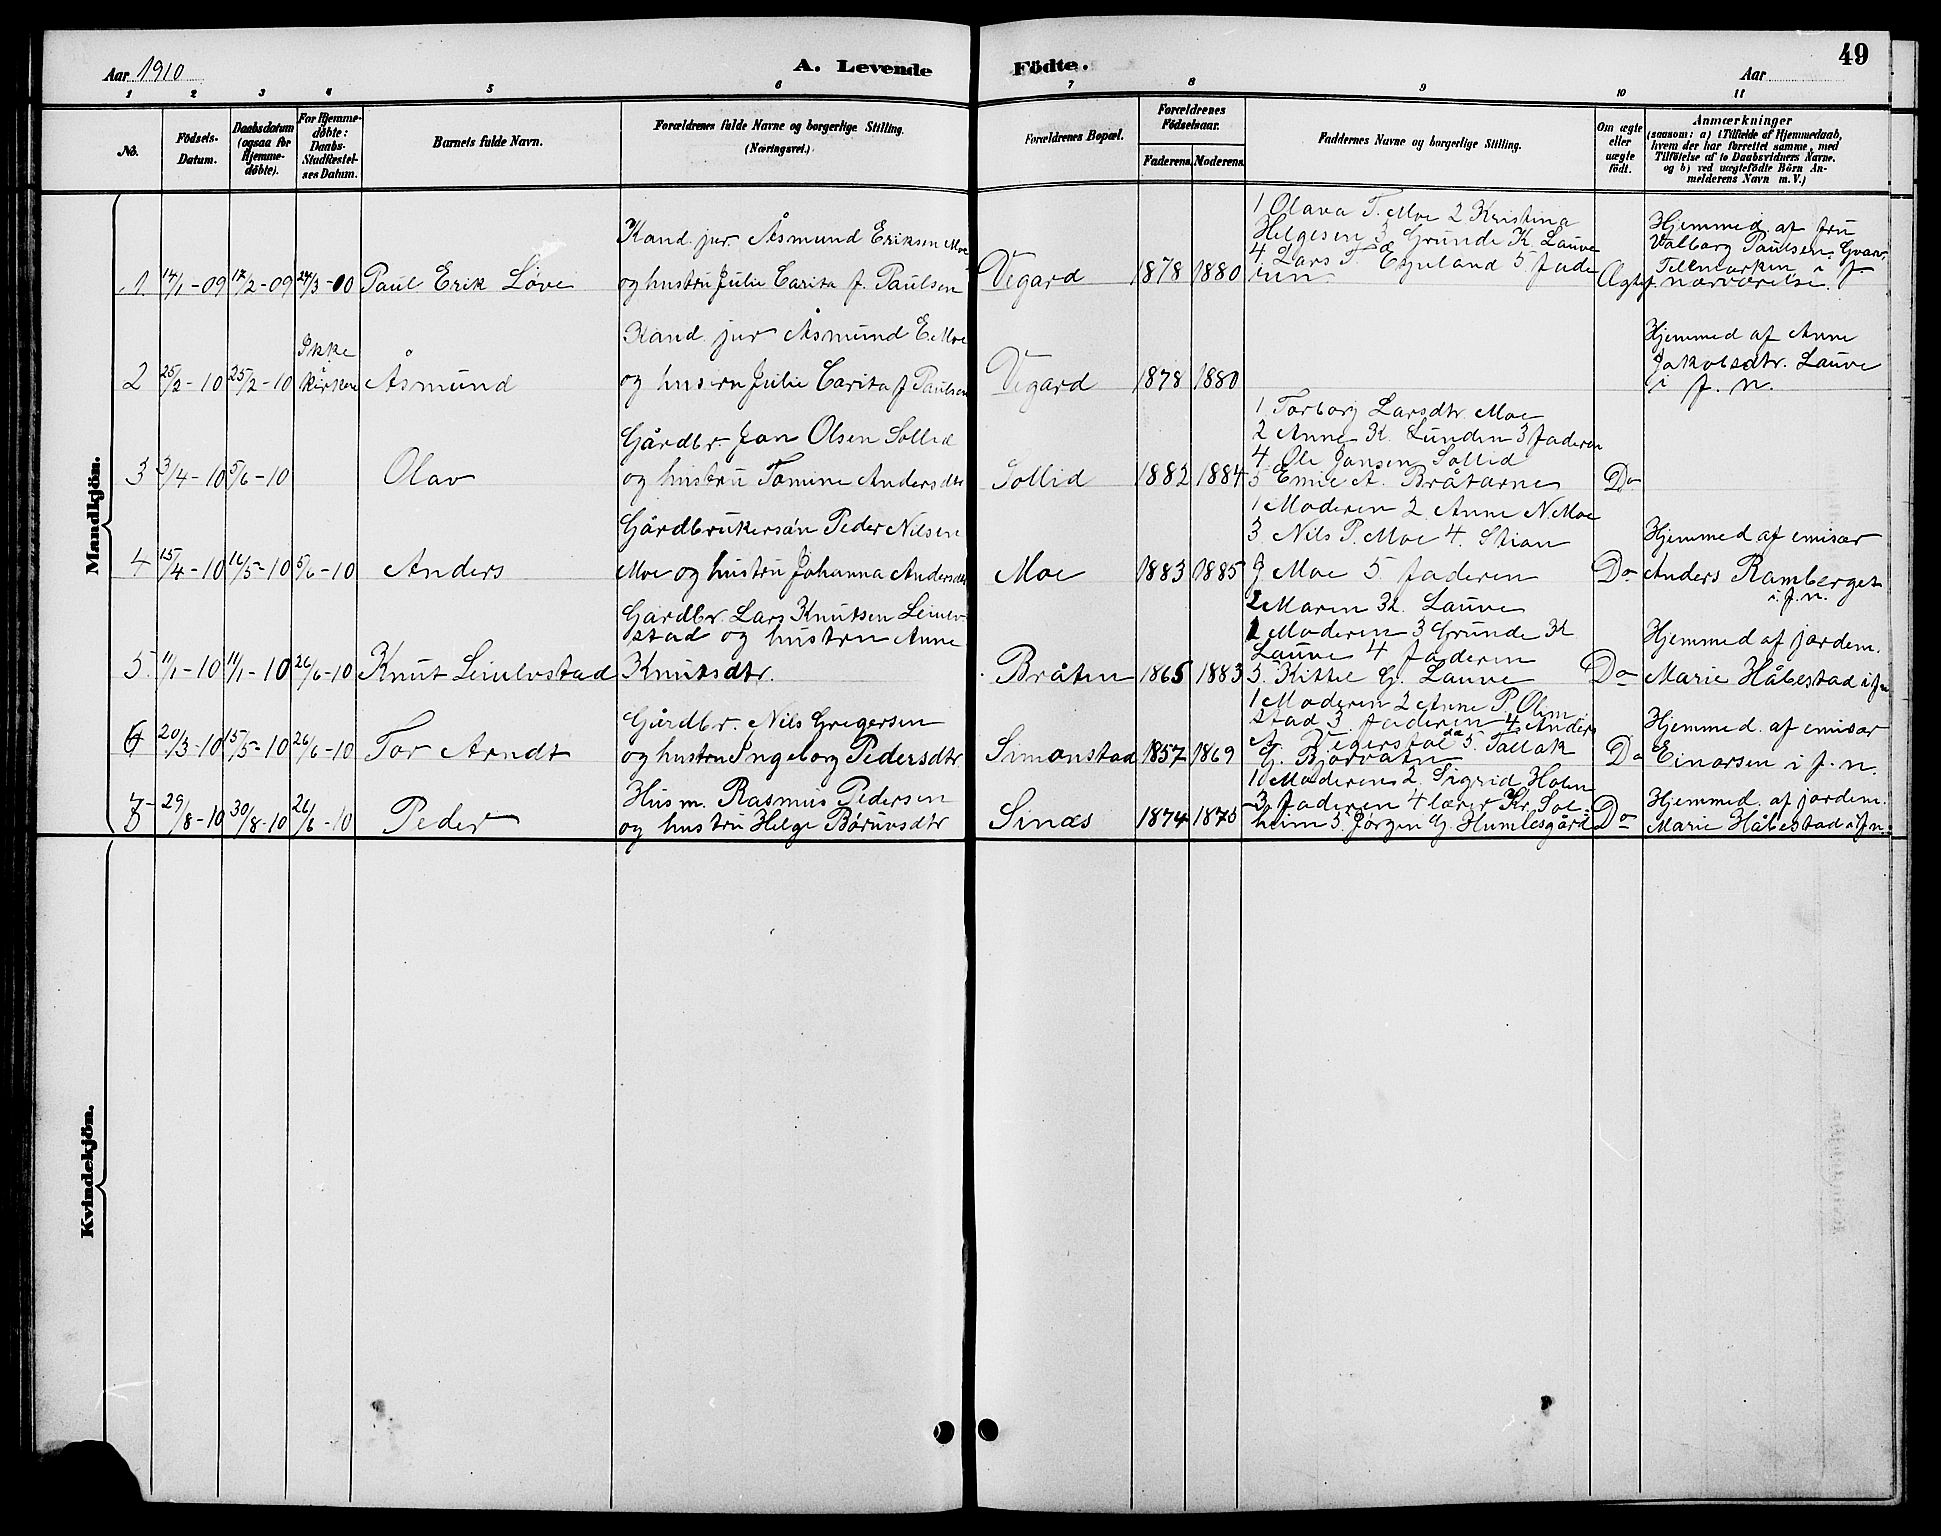 Aar 1910
A. Levende
Födte.
Aar
49
1 2 3 4 5 6 7 8 9 10 11
No.
Födsels-
Datum.
Daabsdatum
(ogsaa for
Hjemme-
døbte).
For Hjemme-
døbte:
Daabs-
Stadfæstel-
ses Datum.
Barnets fulde Navn.
Forældrenes fulde Navne og borgerlige Stilling.
(Næringsvei.)
Forældrenes Bopæl.
Forældrenes
Fødselsaar.
Faderens. Moderens.
Faddernes Navne og borgerlige Stilling.
Om ægte
eller
uægte
født.
Anmærkninger
(saasom: a) i Tilfælde af Hjemmedaab,
hvem der har forrettet samme, med
Tilföielse af to Daabsvidners Navne.
og b) ved uægtefödte Börn An-
melderens Navn m. V.)
Mandkjön.
1 14/1-09 17/2-09 Paul Erik Löve
Kand. jur. Åsmund Eriksen Moe
og hustru Julie Carita f. Paulsen
Vegard 1878 1880
1 Olava T. Moe 2 Kristina
Helgesen 3 Grunde K. Lauve
4 Lars T. 5 Fade
ren.
Ægte
Hjemmed. af fru
Valborg Paulsen, Gvarv
Telemarken i f
nærværelse.
2 25/2-10 25/2-10
Ikke
kirken
Åsmund
Kand. jur Åsmund E. Moe
og hustru Julie Carita f Paulsen
Vegard 1878 1880
Hjemmed af Anne
Jakobsdtr. Lauve
i f. n.
3 3/4-10 5/6-10 Olav
Gårdbr. Jon Olsen Sollid
og hustru Tomine Andersdtr
Sollid 1882 1884
1 Torborg Larsdtr. Moe
2 Anne K. Lunden 3 Faderen
4 Ole Jonsen Sollid
5 A. Bråtarne
Do
4 15/4-10 16/5-10 5/6-10 Anders
Gårdbrukersön Peder Nilsen
Moe og hustru Johanna Andersdtr
Moe 1883 1885
1 Moderen 2 Anne N. Moe
3. Nils P. Moe 4. Stian
J Moe 5 Faderen
Do
Hjemmed af emisær
Anders Ramberget
i. f. n.
5. 11/1-10 11/1-10 26/6-10 Knut
Gårdbr. Lars Knutsen
stad og hustru Anne
Knutsdtr.
Bråten 1865 1883
2 Maren K. Lauve
1 Moderen 3 Grunde K
Lauve 4 Faderen
5. Kittil G. Lauve
Do
Hjemmed af jordem.
Marie Håbestad i f n
6 20/3-10 15/5-10 26/6-10 Tor Arndt
Gårdbr. Nils Gregersen
og hustru Ingeborg Pedersdtr
Simonstad 1857 1869
1 Moderen 2 Anne P. Olim
stad 3 Faderen 4 Anders
A. 5. Tallak
G.
Do
Hjemmed. af emisær
Einarsen i f. n.
7 29/8-10 30/8-10 Peder
Husm. Rasmus Pedersen
og hustru Helge
Sines 1874 1875
1 Moderen 2. Sigrid
3 Faderen 4 lærer Kr. Sol-
heim 5. Jörgen G. Humlesgård
Do
Hjemmed. af jordem.
Marie Håbestad i f n.
Kvindekjön.